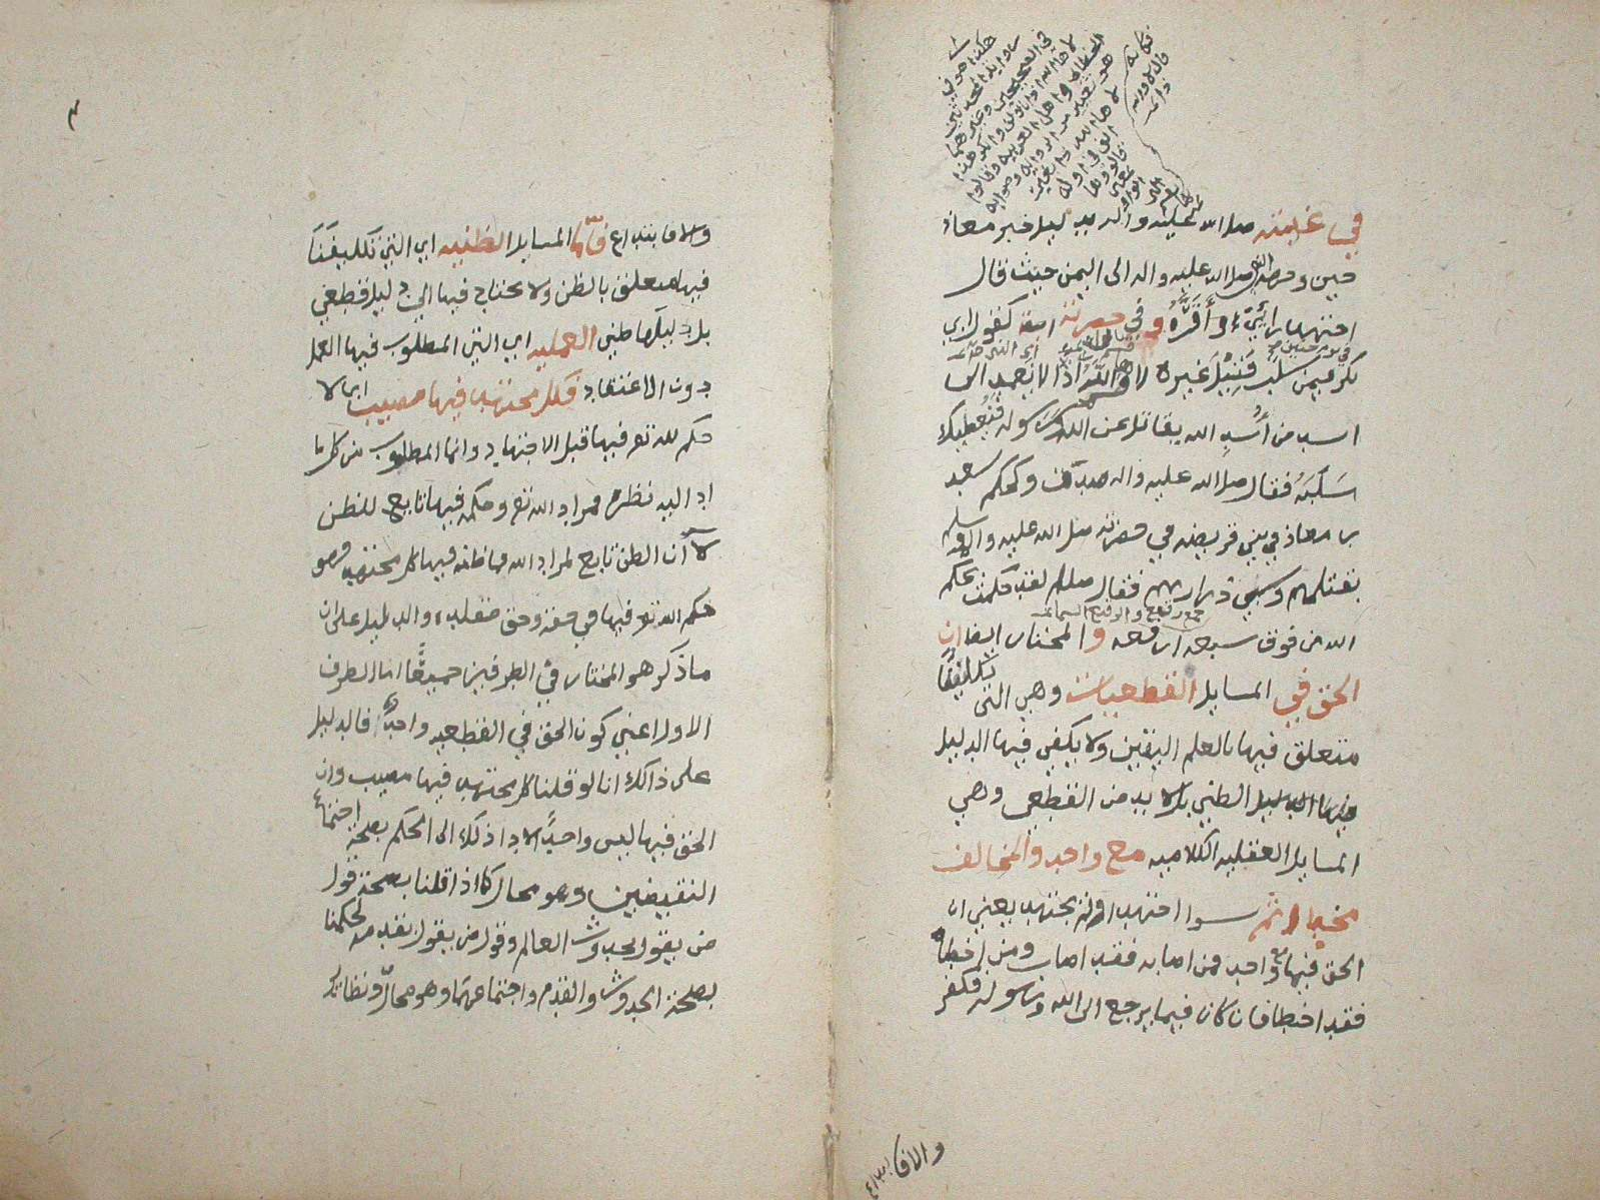 في غيبته صلى الله عليه واله بدليل خبر معاذ
حين وجهه صلى الله عليه واله الى اليمن حيث قال
اجتهد رائي وأقره وفي حضرته ايضا كقول ابي
بكر فيمن سلب قتيل غيره لاها الله اذا لا يعمد الى
اسد من أسد الله يقاتل عن الله ورسوله فيعطيك
سلبه فقال صلى الله عليه واله صدق وكحكم سعد
بن معاذ في بني قريضه في حضرته صلى الله عليه واله وسلم
بقتلهم وسبي ذراريهم فقال صللم لقد حكمت بحكم
جمع رقيع والرقيع السماء
الله من فوق سبعه ارقعه والمختار ايضا ان
الحق في المسايل القطعيات وهي التي تكليفنا
متعلق فيها بالعلم اليقين ولا يكفي فيها الدليل
الظني بل لا بد من القطعي وهي
المسايل العقليه الكلاميه مع واحد والمخالف
مخطٍ اثم سوا اجتهد او لم يجتهد يعني ان
الحق فيها مع واحد فمن اصابه فقد اصاب ومن اخطا
فقد اخطا فان كان فيما يرجع الى الله ورسوله فكفر
والا فابتداع
والا فابتداع فأما المسايل الظنيه اي التي تكليفنا
فيها متعلق بالظن ولا يحتاج فيها الى دليل قطعي
بل دليلها ظني العمليه اي التي المطلوب فيها العمل
دون الاعتقاد فكل مجتهد فيها مصيب اي لا
حكم لله تع فيها قبل الاجتهاد وانما المطلوب من كل ما
ادا اليه نظره فمراد الله تع وحكمه فيها تابع للظن
لا أن الظن تابع لمراد الله فما ظنه فيها كل مجتهد فهو
حكم الله تع فيها في حقه وحق مقلده والدليل على ان
ماذكر هو المختار في الطرفين جميعًا اما الطرف
الاول اعني كون الحق في القطعيه واحدًا فالدليل
على ذالك انا لو قلنا كل مجتهد فيها مصيب وان
الحق فيها ليس واحدًا لادا ذلك الى الحكم بصحة اجتماع
النقيضين وهو محال كما اذا قلنا بصحة قول
من يقول بحدوث العالم وقول من يقول بقدمه لحكمنا
بصحة الحدوث والقدم واجتماعهما وهو محال ونظائر